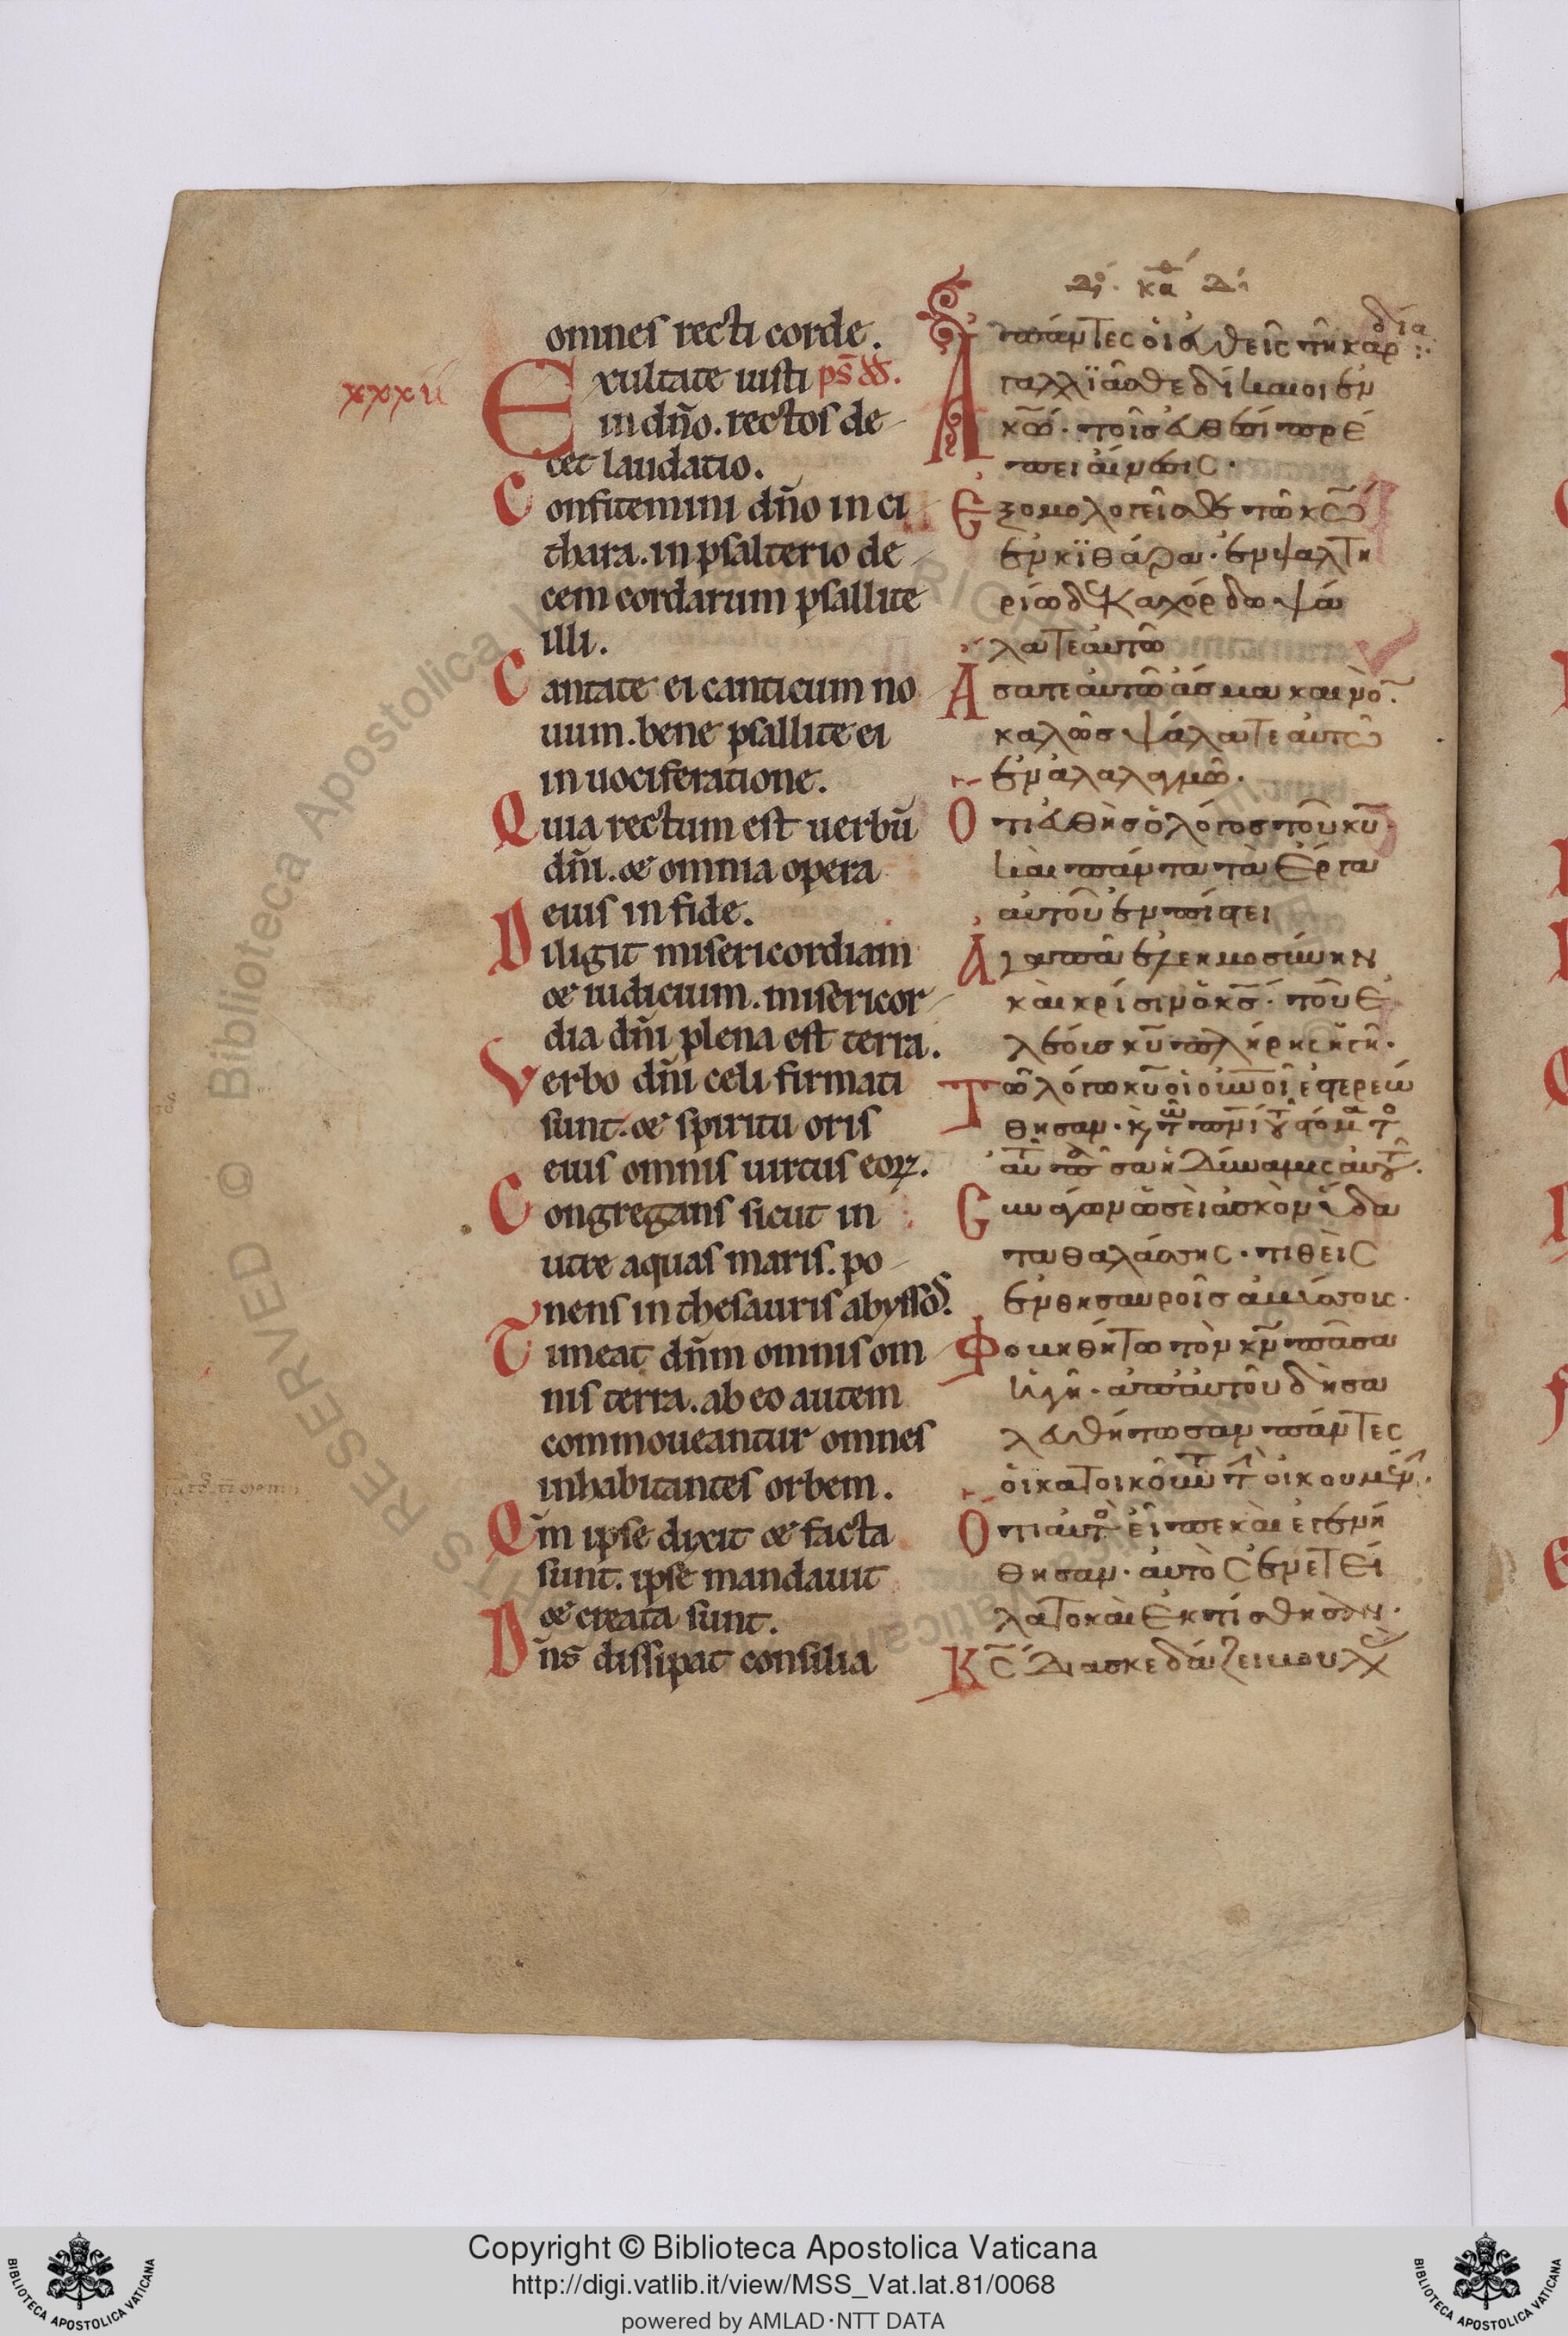 omnes recti corde.
xxxii
Exultate iusti ps̄ dd.
in dn̄o. rectos de
cet laudatio.
Confitemini dn̄o in ci
thara. in psalterio de
cem cordarum psallite
illi.
Cantate ei canticum no
uum. bene psallite ei
in uociferatione.
Quia rectum est uerbū
dn̄i. & omnia opera
eius in fide.
Diligit misericordiam
& iudicium. misericor
dia dn̄i plena est terra.
Verbo dn̄i celi firmati
sunt. & spiritu oris
eius omnis uirtus eoꝝ.
Congregans sicut in
utre aquas maris. po
nens in thesauris abyssos.
Timeat dn̄m omnis om
nis terra. ab eo autem
commoueantur omnes
inhabitantes orbem.
Qm̄ ipse dixit & facta
sunt. ipse mandauit
& creata sunt.
Dn̄s dissipat consilia
πάντες ὁι ἐυθεῖς τῆ καρδία
Ἀγαλλϊᾶσθε δίκαιοι ἐν
κ̄ω̄· τοῖς ἐυθέσι πρέ
πει ἄινεσις·
Ἐξομολογεῖσθε τῶ κ̄ω̄
ἐν κϊθάρα· ἐν ψαλτη
ρίω δεκαχόρδω ψά
λατε ἀυτῶ
Ἄσατε ἀυτῶ ἄσμα καινὸ̄·
καλῶς ψάλατε ἀυτῶ
ἐν ἀλαλαγμῶ·
Ὅτι ἐυθὴς ὁ λόγος τοῦ κ̄ῡ·
κὰι πάντα τὰ ἔργα
ἀυτοῦ ἐν πίστει
Ἀγαπᾶ ἐλεημοσύνην
κὰι κρίσιν ὁ κ̄ς̄· τοῦ ἐ
λέους κ̄ῡ πλήρης ἡ γῆ·
Τῶ λόγω κ̄ῡ ὁι οὐνοὶ ἐστερεώ
θησαν· κ̀ τῶ πν̄ι τοῦ στόματο
ἀυτοῦ πᾶσα ἡ δύναμις ἀυτῶν.
Συνάγων ὡσὲι ἀσκὸν ὕδα
τα θαλάσσης· τιθὲις
ἐν θησαυροῖς ἀβύσσους·
Φοβηθήτω τὸν κ̄ν̄ πᾶσα
ἡ γῆ· ἀπ' ἀυτοῦ δὲ σα
λευθήτωσαν πάντες
ὁι κατοικοῦντ τὴν ὀικουμένην·
Ὅτι ἀυτὸ εἶπε κὰι ἐγενή
θησαν· ἀυτὸς ἐνετεί
λατο κὰι ἐκτίσθησαν·
Κ̄ς̄ διασκεδάζει βουλὰς
Copyright © Biblioteca Apostolica Vaticana
http://digi.vatlib.it/view/MSS_Vat.lat.81/0068
powered by AMLAD·NTT DATA